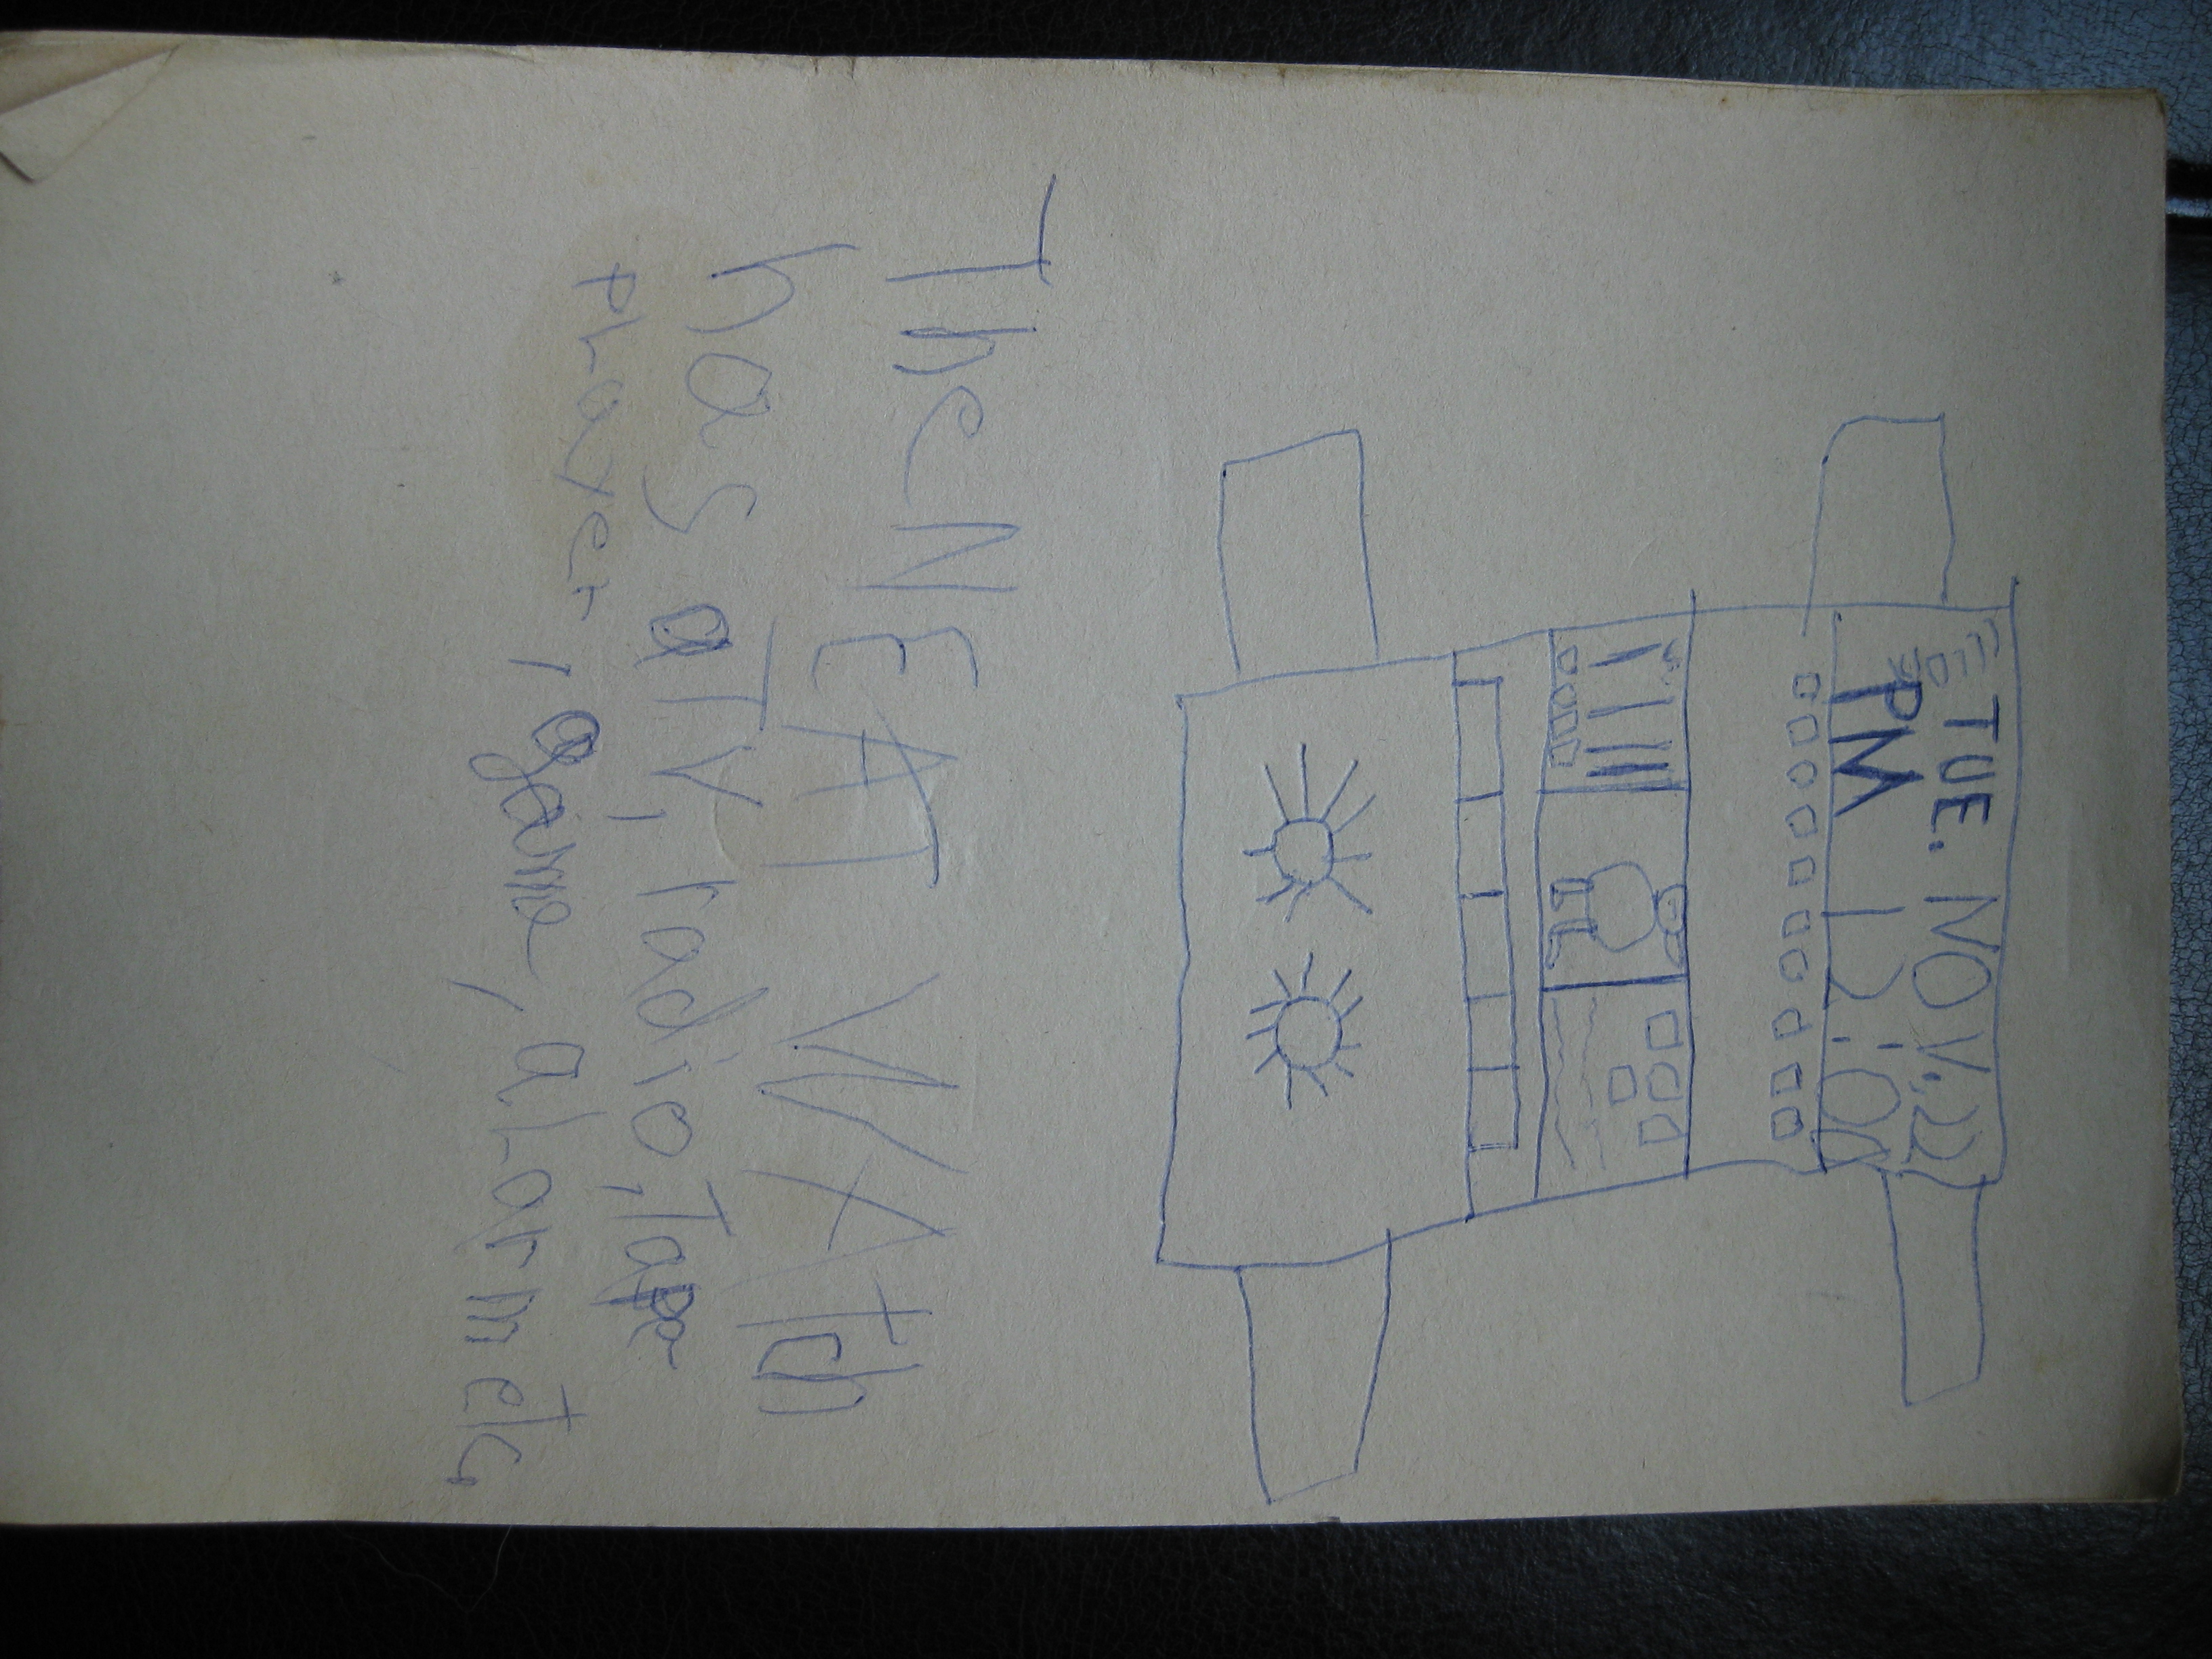 TUE. NOV. 22
PM 12:00
The NEAT WAtch
has a TV, radio, Tape
pLayer, game, aLarm etc,